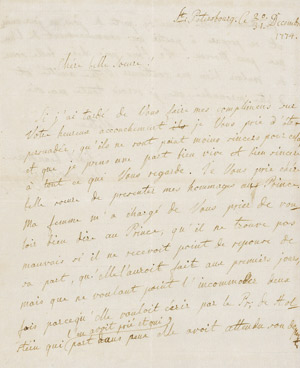 St. Petersbourg. Ce 20/31 Decemb
1774.
Chère belle Soeur!
Si j'ai tardé de Vous faire mes complimens sur
Votre heureux accouchement je Vous prie d'être
persuadée, qu'ils ne sont point moins sincères pour cela
et que je prens une part bien vive et bien sincère
à tout ce qui Vous regarde. Je Vous prie chère
belle soeur de presenter mes hommages au Prince,
Ma femme m'a chargé de Vous prier de vou
loir bien dire au Prince, qu'il ne trouve pas
mauvais si il ne recevroit point de reponse de
sa part, qu'elle l'auroit fait aux premiers jours,
mais que ne voulant point l'incommoder deux
fois parcequ'elle vouloit ecrir par le Pr: de Hol
stein qui part dans peu elle avoit attendu son